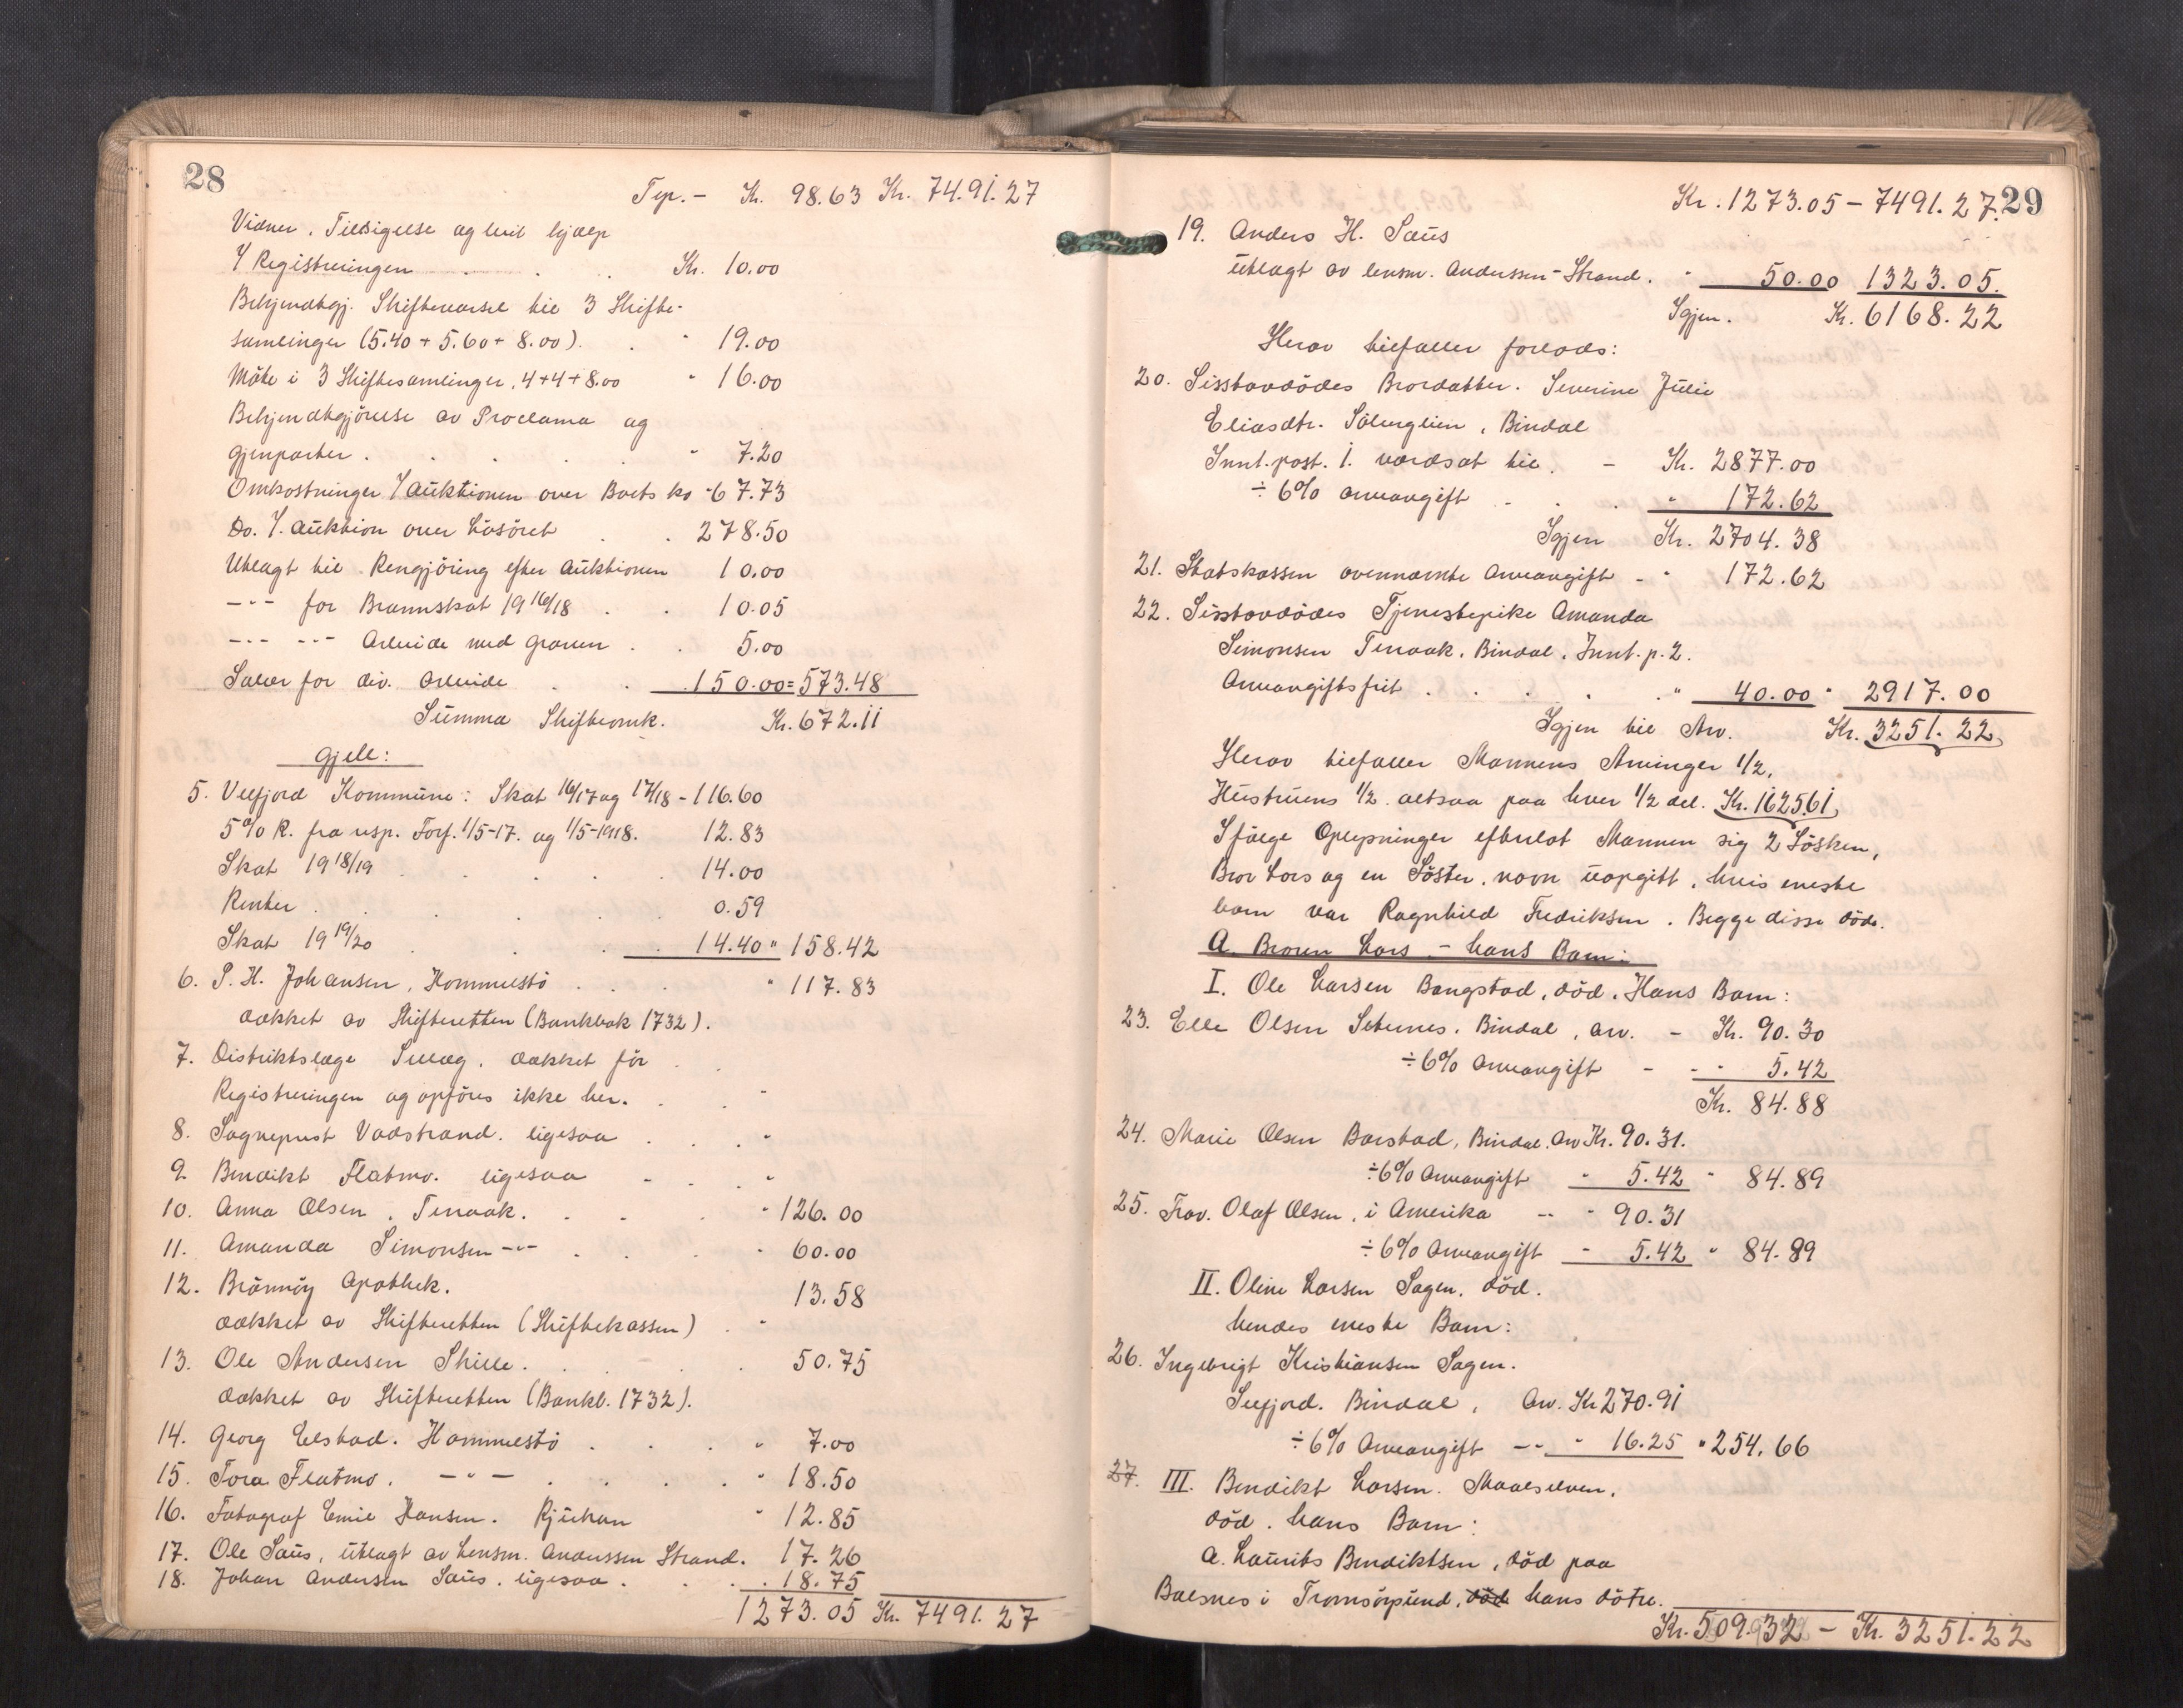 28
Tsp. - Kr. 98.63 Kr. 7491.27
Vidner, Tilsigelse og leiet hjælp
v/ Registreringen . . . Kr. 10.00
Bekjendtgj. Skiftevarsel til 3 Skifte-
samlinger (5.40 + 5.60 + 8.00) . . " 19.00
Møte i 3 Skiftesamlinger, 4+4+8.00 " 16.00
Bekjendtgjørelse av Proclama og
gjenparter . . . . . " 7.20
Omkostninger v/ Auktionen over Boets ko " 67.73
Do. v. Auktion over Løsøret . . 278.50
Utlagt til Rengjøring efter Auktionen 10.00
-"- for Brannskat 1916/18 . . 10.05
-"- -"- Arbeide med graven . . 5.00
Salær for div. Arbeide . . 150.00 = 573.48
Summa Skifteomk. Kr. 672.11
Gjeld:
5. Velfjord Kommune: Skat 16/17 og 17/18 - 116.60
5% R. fra resp. Forf. 1/5-17. og 1/5-1918. 12.83
Skat 1918/19 . . . . . 14.00
Renter . . . . . 0.59
Skat 1919/20 . . . 14.40 " 158.42
6. P. H. Johansen, Hommelstø . . . " 117.83
dækket av Skifteretten (Bankbok 1732).
7. Distriktslæge Selæg. dækket før . .
Registreringen og opføres ikke her. . . "
8. Sogneprest Vadstrand. ligesaa . . . "
9. Bendikt Flatmo. ligesaa - . . "
10. Anna Olsen, Terraak. . . . " 126.00
11. Amanda Simonsen -"- . . . " 60.00
12. Brønnøy Apothek. 13.58
dækket av Skifteretten (Skiftekassen) . "
13. Ole Andersen Skille. . . . 50.75
dækket av Skifteretten (Bankb. 1732).
14. Georg Elstad. Hommelstø . . . " 7.00
15. Tora Flatmo. -"- . . . " 18.50
16. Fotograf Emil Hansen. Rjukan " 12.85
17. Ole Saus, utlagt av lensm. Anderssen Strand. 17.26
18. Johan Andersen Saus. ligesaa . . . 18.75
1273.05 Kr. 7491.27
29
Kr. 1273.05 - 7491.27.
19. Anders H. Saus
utlagt av lensm. Anderssen-Strand. " 50.00 1323.05.
Igjen. Kr. 6168.22
Herav tilfaller forlods:
20. Sisstavdødes Brordatter. Severine Julie
Eliasdtr. Sølverglien, Bindal
Innt. post. 1. værdsat til . - Kr. 2877.00
÷ 6% arveavgift - . . " 172.62
Igjen Kr. 2704.38
21. Statskassen ovennævnte Arveavgift - " 172.62
22. Sisstavdødes Tjenestepike Amanda
Simonsen Terraak, Bindal. Innt. p. 2.
Arveavgiftsfrit . . . . . " 40.00 " 2917.00
Igjen til Arv. Kr. 3251.22
Herav tilfaller Mannens Arvinger 1/2,
Hustruens 1/2. altsaa paa hver 1/2 del. Kr. 1625.61
Ifølge Oplysninger efterlot Mannen sig 2 Søsken,
Bror Lars og en Søster, navn uopgitt, hvis eneste
barn var Ragnhild Fredriksen. Begge disse døde.
A. Broren Lars - hans Barn:
I. Ole Larsen Bangstad, død. Hans Barn:
23. Elle Olsen Seternes. Bindal, arv. - Kr. 90.30
÷ 6% Arveavgift - - " 5.42
Kr. 84.88
24. Marie Olsen Barstad, Bindal. arv Kr. 90.31.
÷ 6% Arveavgift - " 5.42 " 84.89
25. Frav. Olaf Olsen, i Amerika -- " 90.31
÷ 6% Arveavgift - 5.42 " 84.89
II. Oline Larsen Sagen, død.
hendes eneste Barn:
26. Ingebrigt Kristiansen Sagen.
Selfjord. Bindal, Arv. Kr 270.91
÷ 6% Arveavgift -- " 16.25 " 254.66
27. III. Bendikt Larsen. Maalselven,
død. hans Barn:
a. Laurits Bendiktsen, død paa
Balsnes i Tromsøysund, død hans døtre.
Kr. 509.32 - Kr. 3251.22